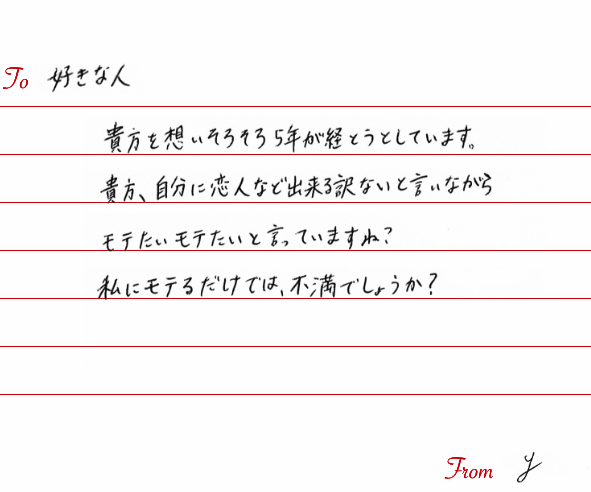 To 好きな人
貴方を想いそろそろ5年が経とうとしています。
貴方、自分に恋人など出来る訳ないと言いながら
モテたいモテたいと言っていますね?
私にモテるだけでは、不満でしょうか?
From y